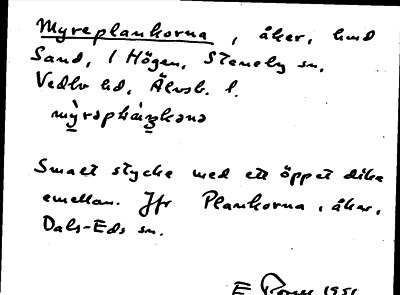 Myreplankorna, åker, hmd
Sand, 1 Högen, Steneby sn,
Vedbo hd, Älvsb. l.
Smalt stycke med ett öppet dike
emellan. Jfr Plankorna, åker,
Dals-Eds sn.
1951